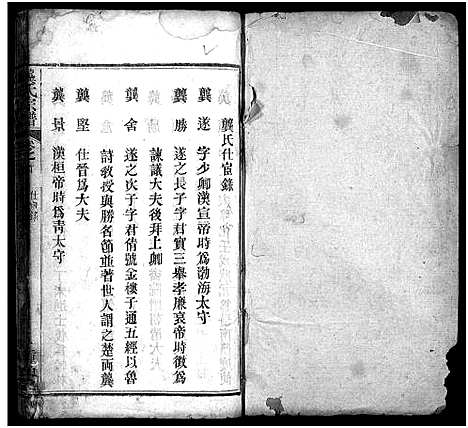 龔氏仕宦錄
龔遂 字少卿漢宣帝時為渤海太守
龔勝 遂之長子字君實三舉孝廉哀帝時徵為
諫議大夫後拜上卿
龔舍 遂之次子字君倩號金樓子通五經以魯
詩教授與勝名節並著世人謂之楚兩龔
龔堅 仕晉為大夫
龔景 漢桓帝時為青太守
龔氏宗譜
仕宦錄